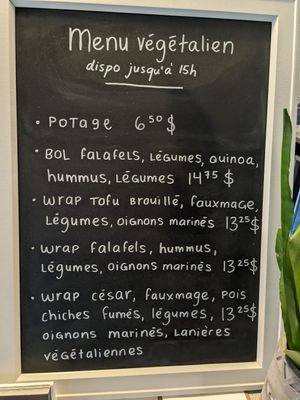 Menu végétalien
dispo jusqu'à 15h
• Potage 6⁵⁰$
• Bol falafels, légumes, quinoa,
hummus, légumes 14⁷⁵ $
• Wrap tofu brouillé, fauxmage,
légumes, oignons marinés 13²⁵$
• Wrap falafels, hummus,
légumes, oignons marinés 13²⁵$
• Wrap césar, fauxmage, pois
chiches fumés, légumes, 13²⁵$
oignons marinés, lanières
végétaliennes